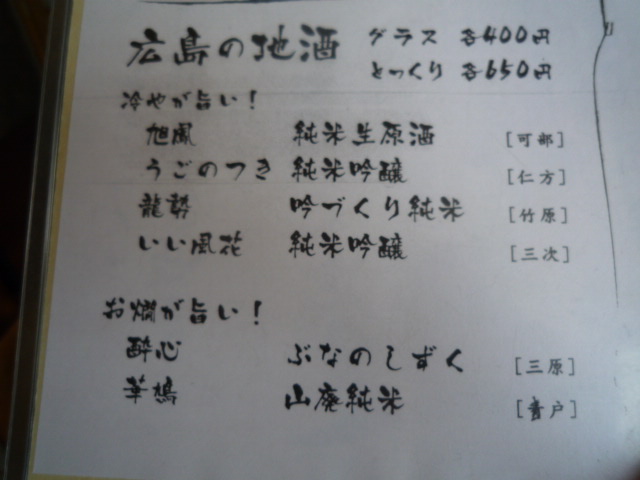 広島の地酒 グラス 各400円
とっくり 各650円
冷やが旨い!
旭鳳 純米生原酒 [可部]
うごのつき 純米吟醸 [仁方]
龍勢 吟づくり純米 [竹原]
いい風花 純米吟醸 [三次]
お燗が旨い!
酔心 ぶなのしずく [三原]
華鳩 山廃純米 [音戸]